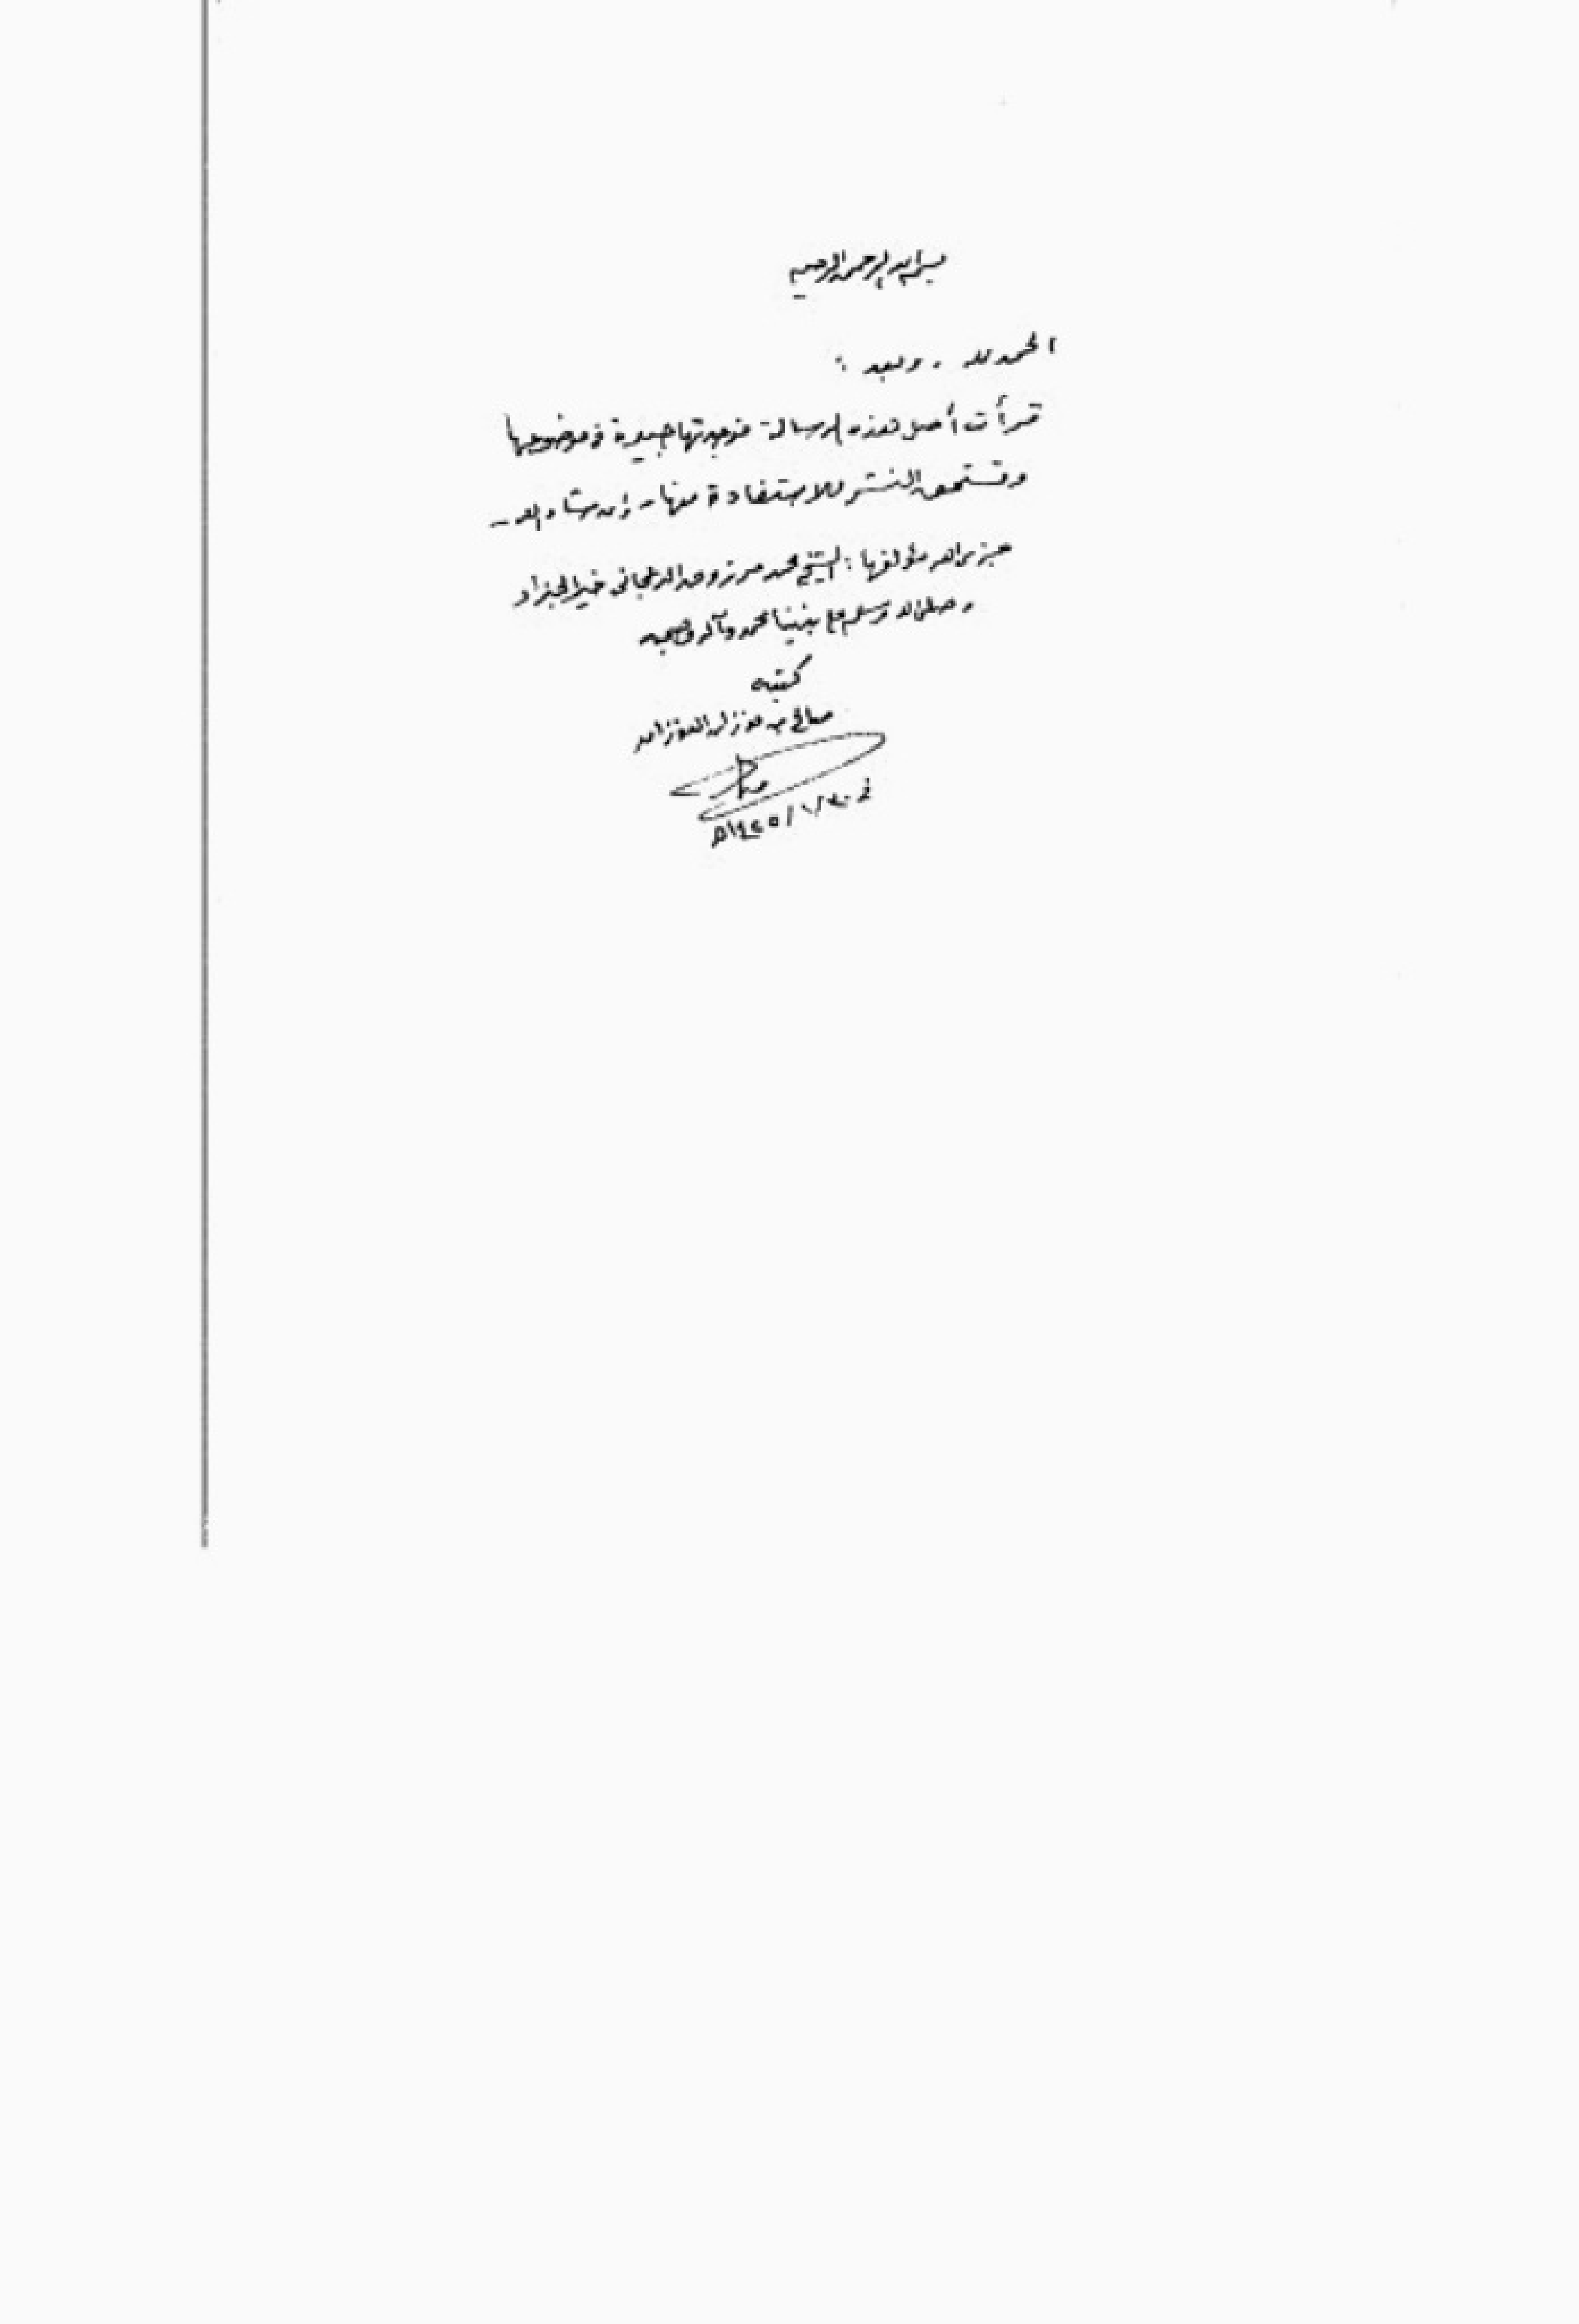 بسم الله الرحمن الرحيم
الحمد لله . وبعد :
قرأت أصل هذه الرسالة فوجدتها جيدة في موضوعها
وتستحق النشر للاستفادة منها - إن شاء الله -
فجزى الله مؤلفها : الشيخ محمد مرزوق خير الجزاء
وصلى الله وسلم على نبينا محمد وآله وصحبه
كتبه
صالح بن فوزان الفوزان
في